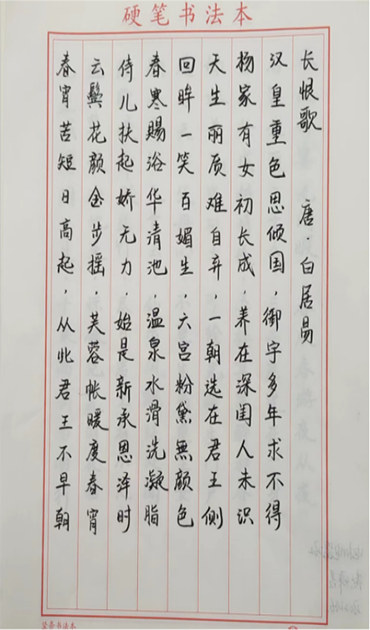 硬笔书法本
长恨歌 唐·白居易
汉皇重色思倾国，御宇多年求不得
杨家有女初长成，养在深闺人未识
天生丽质难自弃，一朝选在君王侧
回眸一笑百媚生，六宫粉黛無颜色
春寒赐浴华清池，温泉水滑洗凝脂
侍儿扶起娇无力，始是新承恩泽时
云鬓花颜金步摇，芙蓉帐暖度春宵
春宵苦短日高起，从此君王不早朝